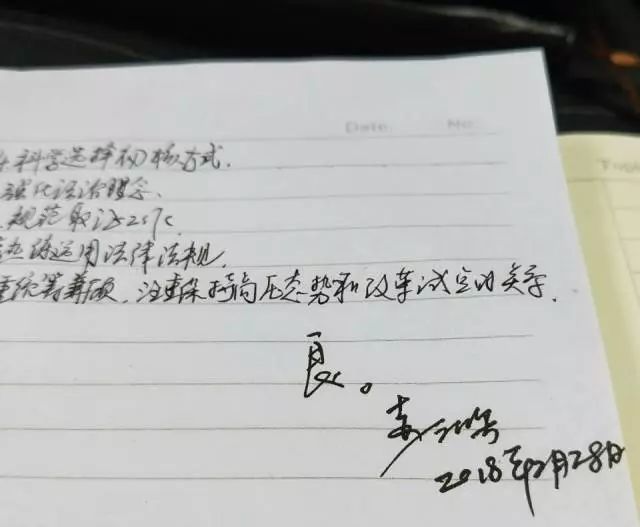 Date. No.
科学选择初核方式.
强化法治
规范取证
运用法律法规.
统筹兼顾,注重保持高压态势和改革试点的关系.
良。
2018年2月28日